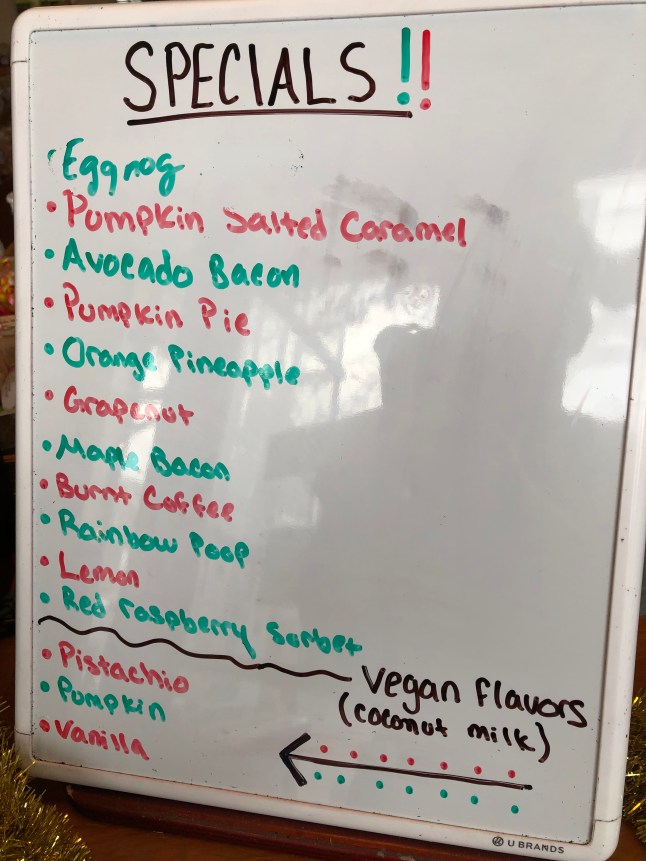 SPECIALS!!
• Eggnog
• Pumpkin Salted Caramel
• Avocado Bacon
• Pumpkin Pie
• Orange Pineapple
• Grapenut
• Maple Bacon
• Burnt Coffee
• Rainbow Poop
• Lemon
• Red raspberry Sorbet
• Pistachio
• Pumpkin
• Vanilla
Vegan Flavors
(coconut milk)
U BRANDS